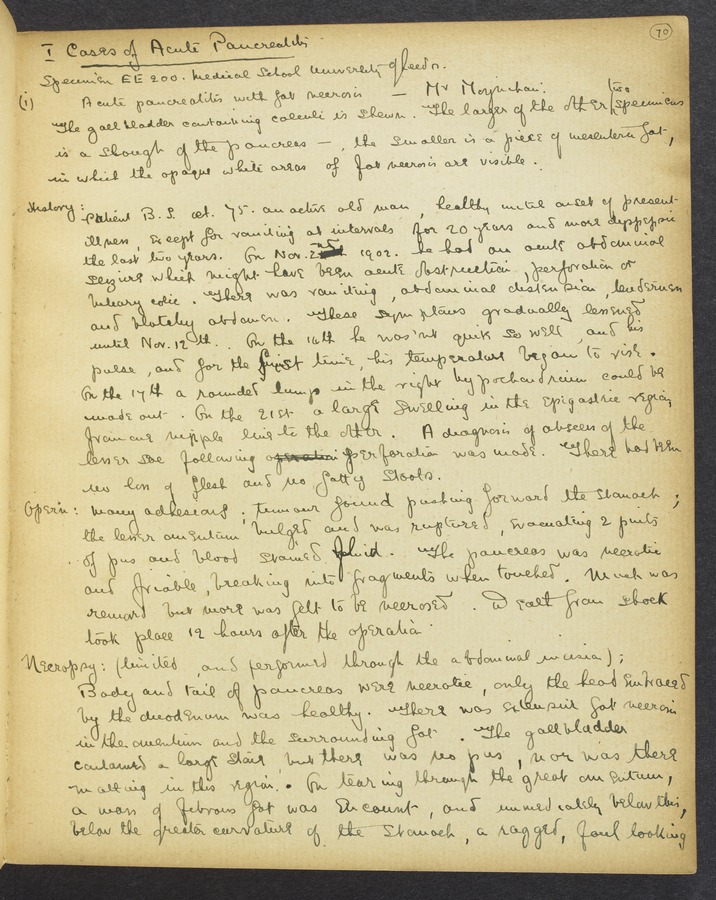 70
I Cases of Acute Pancreatitis
Specimen EE 200. Medical School University of Leeds.
(1) Acute pancreatitis with fat necrosis — Mr Moynihan.
The gall bladder containing calculi is shewn. The larger of the other two specimens
is a slough of the pancreas —, the smaller is a piece of mesenteric fat,
in which the opaque white areas of fat necrosis are visible.
History: Patient B. S. aet. 75. an active old man, healthy until onset of present
illness, except for vomiting at intervals for 20 years and more dyspepsia
the last two years. On Nov. 2nd 1902. he had an acute abdominal
seizure which might have been acute obstruction, perforation or
biliary colic. There was vomiting, abdominal distension, tenderness
and blotchy abdomen. These symptoms gradually lessened
until Nov. 12th. On the 16th he wasn't quite so well, and his
pulse, and for the first time, his temperature began to rise.
On the 17th a rounded lump in the right hypochondrium could be
made out. On the 21st a large swelling in the epigastric region
from one nipple line to the other. A diagnosis of abscess of the
lesser sac following operation perforation was made. There had been
no loss of flesh and no fatty stools.
Opern: Many adhesions; tumour found pushing forward the stomach;
the lesser omentum bulged and was ruptured, evacuating 2 pints
of pus and blood stained fluid. The pancreas was necrotic
and friable, breaking into fragments when touched. Much was
removed but more was felt to be necrosed. Death from shock
took place 12 hours after the operation.
Necropsy: (limited, and performed through the abdominal incision);
Body and tail of pancreas were necrotic, only the head embraced
by the duodenum was healthy. There was extensive fat necrosis
in the omentum and the surrounding fat. The gallbladder
contained a large stone, but there was no pus, nor was there
matting in this region. On tearing through the great omentum,
a mass of fibrous fat was encount, and immediately below this,
below the greater curvature of the stomach, a ragged, foul looking